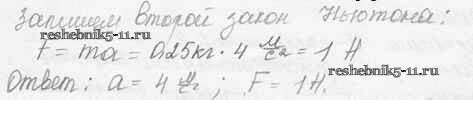 Запишем второй закон Ньютона:
reshebnik5-11.ru
F = ma = 0,25кг · 4 м/с² = 1 Н
reshebnik5-11.ru
Ответ: a = 4 м/с² ; F = 1Н.
reshebnik5-11.ru